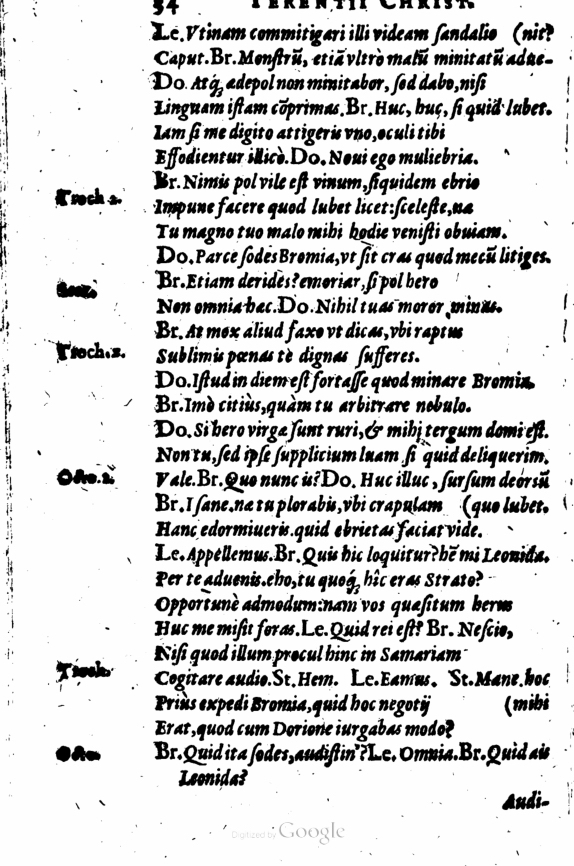 54 TERENTII CHRIST.
Le. Vtinam commitigari illi videam sandalio (nit?
Caput. Br. Monstrũ, etiã vltrò malũ minitatũ adue-
Do. Atq́; adepol non minitabor, sed dabo, nisi
Linguam istam cõprimas. Br. Huc, huc, si quid lubet.
Iam si me digito attigeris vno, oculi tibi
Effodientur illicò. Do. Noui ego muliebria.
Br. Nimis pol vile est vinum, siquidem ebrio
Troch. 2. Impune facere quod lubet licet: sceleste, na
Tu magno tuo malo mihi hodie venisti obuiam.
Do. Parce sodes Bromia, vt sit cras quod mecũ litiges.
Br. Etiam derides? emoriar, si pol hero
Non omnia hac. Do. Nihil tuas moror minas.
Br. At mox aliud faxo vt dicas, vbi raptus
Troch. 2. Sublimis pœnas tè dignas sufferes.
Do. Istud in diem est fortasse quod minare Bromia.
Br. Imò citiùs, quàm tu arbitrare nebulo.
Do. Si hero virga sunt ruri, & mihi tergum domi est.
Non tu, sed ipse supplicium luam si quid deliquerim,
Octo. 2. Vale. Br. Quo nunc is? Do. Huc illuc, sursum deorsũ
Br. I sane. na tu plorabis, vbi crapulam (quo lubet.
Hanc edormiueris. quid ebrietas faciat vide.
Le. Appellemus. Br. Quis hic loquitur? hẽ mi Leonida.
Per te aduenis. eho, tu quoq́; hîc eras Strato?
Opportunè admodum: nam vos quæsitum herus
Huc me misit foras. Le. Quid rei est? Br. Nescio,
Nisi quod illum procul hinc in Samariam
Troch. Cogitare audio. St. Hem. Le. Eamus. St. Mane. hoc
Priùs expedi Bromia, quid hoc negotij (mihi
Erat, quod cum Dorione iurgabas modo?
Octo. Br. Quid ita sodes, audistin'? Le. Omnia. Br. Quid ais
Leonida?
Audi-
Digitized by Google